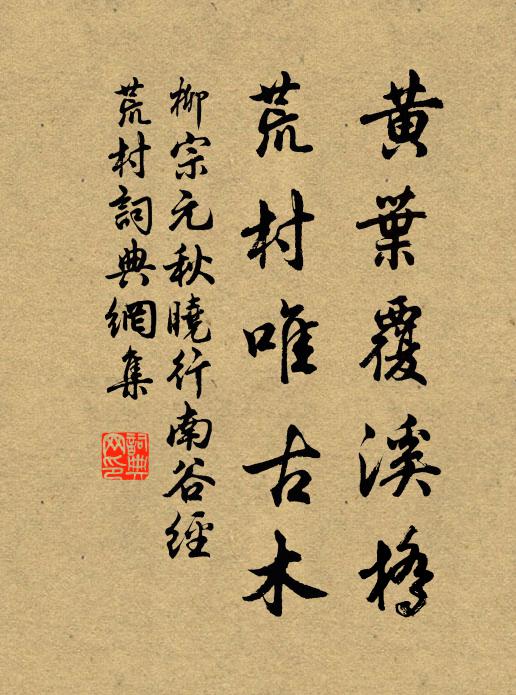 黃葉覆溪橋
荒村唯古木
柳宗元秋曉行南谷經
荒村詞典網集
詞典
网印